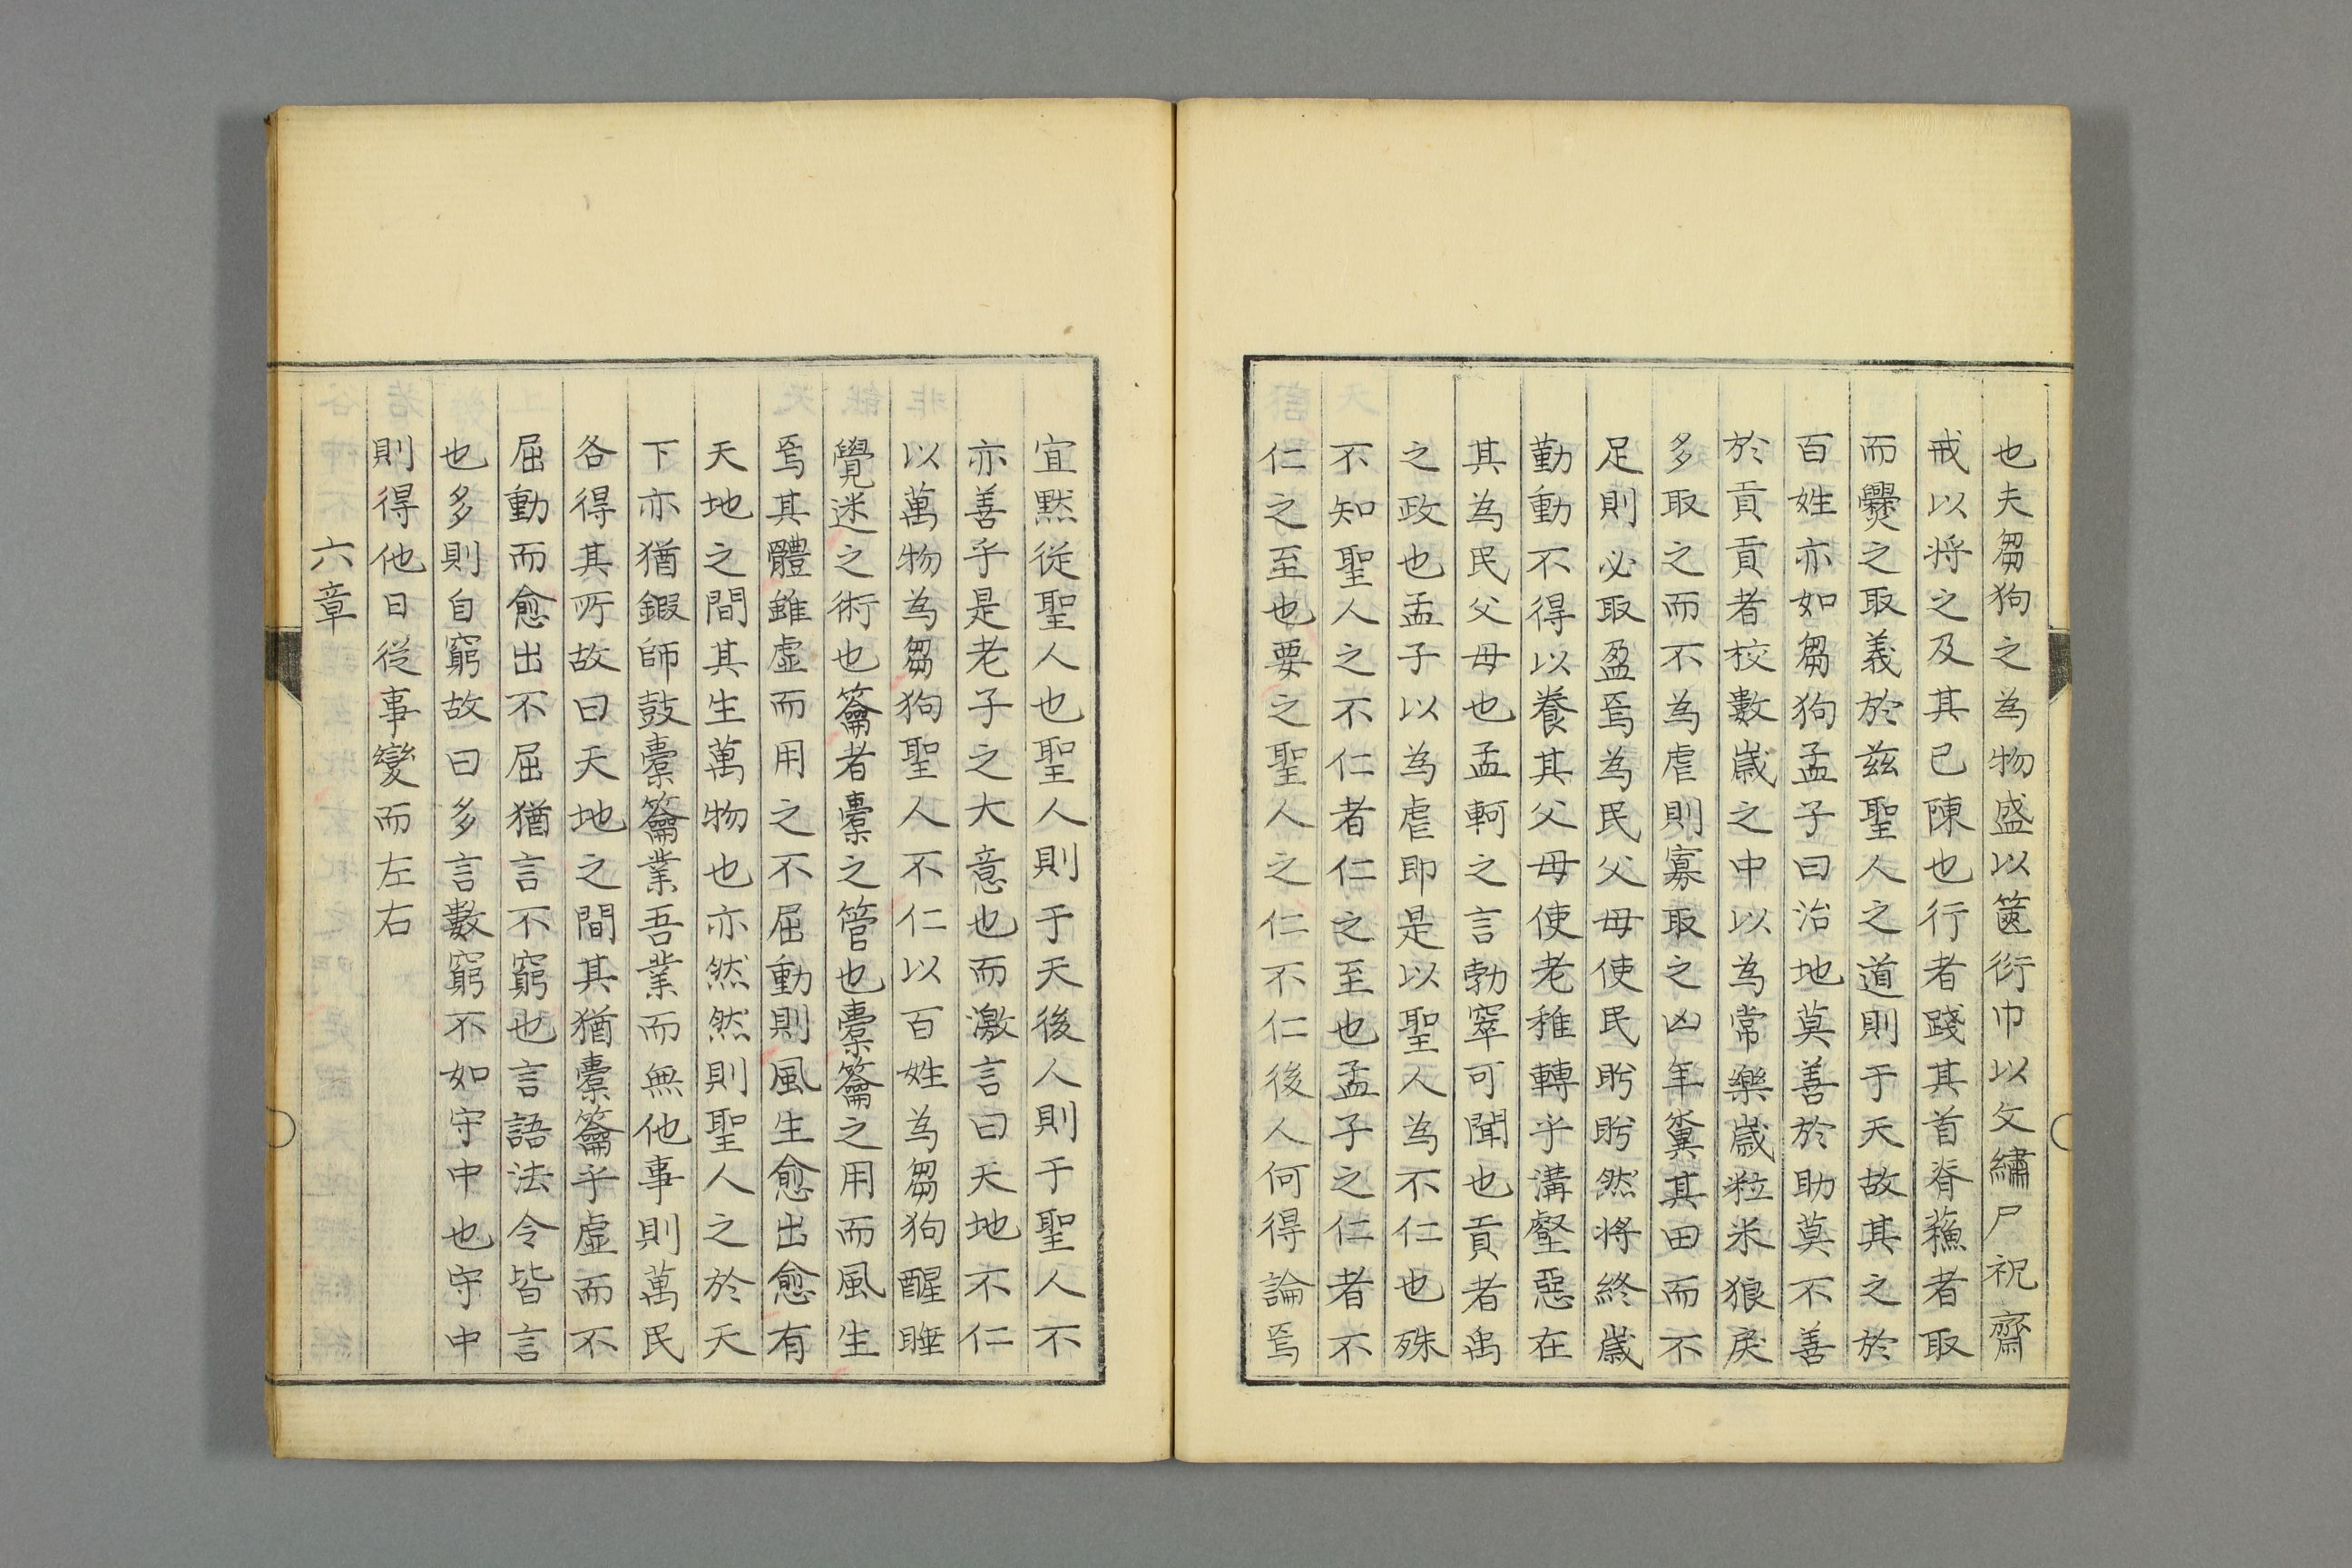 也夫芻狗之為物盛以篋衍巾以文繡尸祝齋
戒以将之及其已陳也行者踐其首脊蘓者取
而爨之取義於茲聖人之道則于天故其之於
百姓亦如芻狗孟子曰治地莫善於助莫不善
於貢貢者校數歲之中以為常樂歲粒米狼戾
多取之而不為虐則寡取之凶年糞其田而不
足則必取盈焉為民父母使民盻盻然将終歲
勤動不得以養其父母使老稚轉乎溝壑惡在
其為民父母也孟軻之言勃窣可聞也貢者禹
之政也孟子以為虐即是以聖人為不仁也殊
不知聖人之不仁者仁之至也孟子之仁者不
仁之至也要之聖人之仁不仁後人何得論焉
宜黙従聖人也聖人則于天後人則于聖人不
亦善乎是老子之大意也而激言曰天地不仁
以萬物為芻狗聖人不仁以百姓為芻狗醒睡
覺迷之術也籥者橐之管也橐籥之用而風生
焉其體雖虛而用之不屈動則風生愈出愈有
天地之間其生萬物也亦然然則聖人之於天
下亦猶鍜師鼓橐籥業吾業而無他事則萬民
各得其所故曰天地之間其猶橐籥乎虛而不
屈動而愈出不屈猶言不窮也言語法令皆言
也多則自窮故曰多言數窮不如守中也守中
則得他日從事變而左右
六章